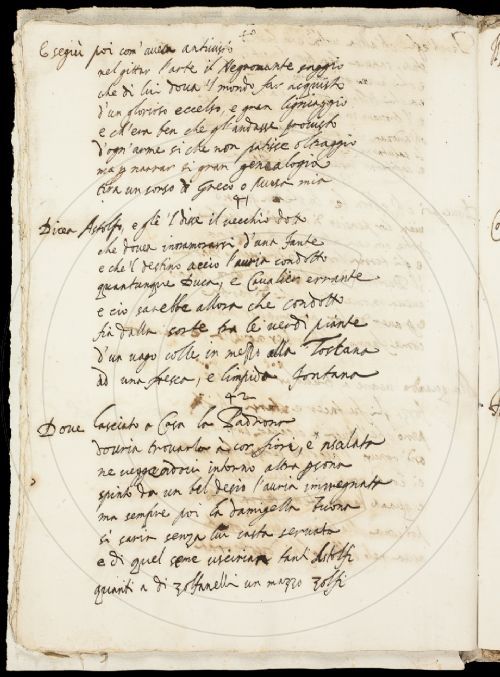 40
E seguì poi com' aveva antiviso
nel gittar l'arte il Negromante saggio
che di lui dovea 'l mondo far acquisto
d'un glorioso eccelso, e gran lignaggio
e ch'era ben che gl'andasse provisto
d'ogn'arme sì che non patisce oltraggio
ma narrar sì gran genealogia
tira un sorso di Greco o Musa mia
41
Dicea Astolfo, e gle 'l disse il vecchio dotto
che dovea innamorarsi d'una fante
e che 'l destino acciò l'auria condotto
quantunque Duca, e Cavalier errante
e ciò sarebbe allora che condotto
fia dalla sorte tra le verdi piante
d'un vago colle in mezzo alla Toscana
ad una fresca, e limpida fontana
42
Dove lasciato a Casa la Padrona
douria trouarla à cor fiori, e nsalata
ne ueggendoui intorno altra psona
spinto da un bel desio l'auria impregnata
ma sempre poi la damigella buona
si saria senza lui casta seruata
e di quel seme usciriano tanti Astolfi
quanti a di zolfanelli un mazzo zolfi